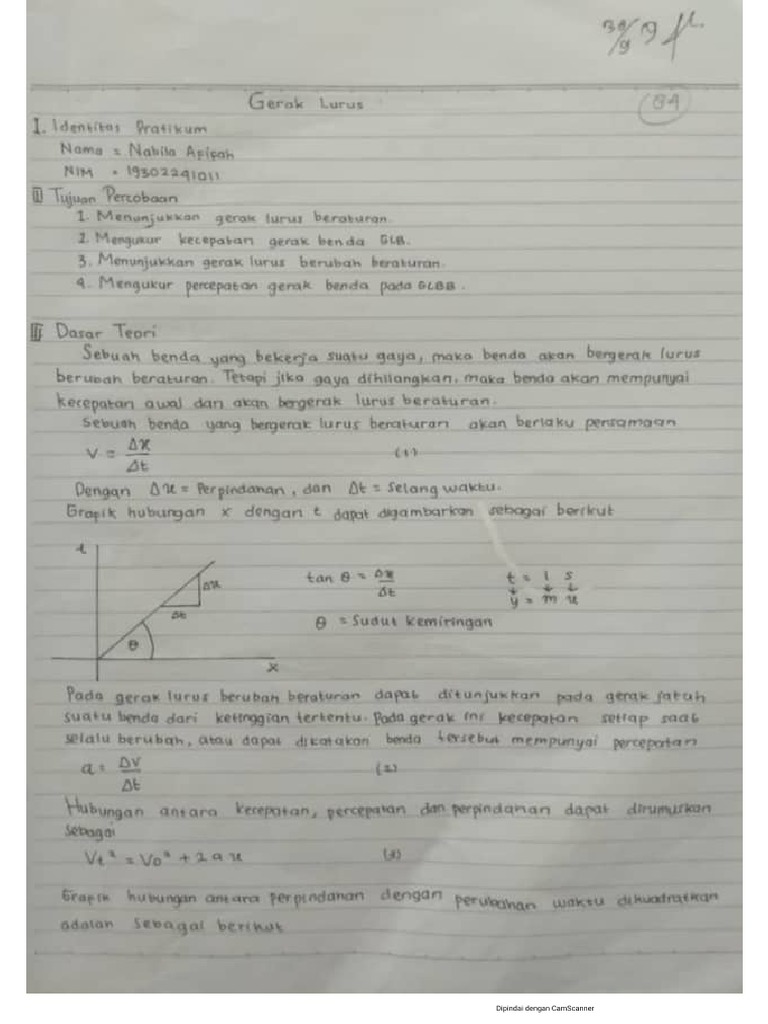 30/9
84
Gerak Lurus
I. Identitas Pratikum
Nama = Nabila Afifah
NIM = 19302241011
II Tujuan Percobaan
1. Menunjukkan gerak lurus beraturan.
2. Mengukur kecepatan gerak benda GLB.
3. Menunjukkan gerak lurus berubah beraturan.
4. Mengukur percepatan gerak benda pada GLBB.
III Dasar Teori
Sebuah benda yang bekerja suatu gaya, maka benda akan bergerak lurus
berubah beraturan. Tetapi jika gaya dihilangkan, maka benda akan mempunyai
kecepatan awal dan akan bergerak lurus beraturan.
Sebuah benda yang bergerak lurus beraturan akan berlaku persamaan
V = Δx/Δt (1)
Dengan Δx = Perpindahan, dan Δt = Selang waktu.
Grafik hubungan x dengan t dapat digambarkan sebagai berikut
t
Δx
Δt
θ
x
tan θ = Δx/Δt
θ = Sudut kemiringan
t = 1 s
y = m x
Pada gerak lurus berubah beraturan dapat ditunjukkan pada gerak jatuh
suatu benda dari ketinggian tertentu. Pada gerak ini kecepatan setiap saat
selalu berubah, atau dapat dikatakan benda tersebut mempunyai percepatan
a = ΔV/Δt (2)
Hubungan antara kecepatan, percepatan dan perpindahan dapat dirumuskan
sebagai
Vt² = Vo² + 2 a x (3)
Grafik hubungan antara perpindahan dengan perubahan waktu dikuadratkan
adalah sebagai berikut
Dipindai dengan CamScanner